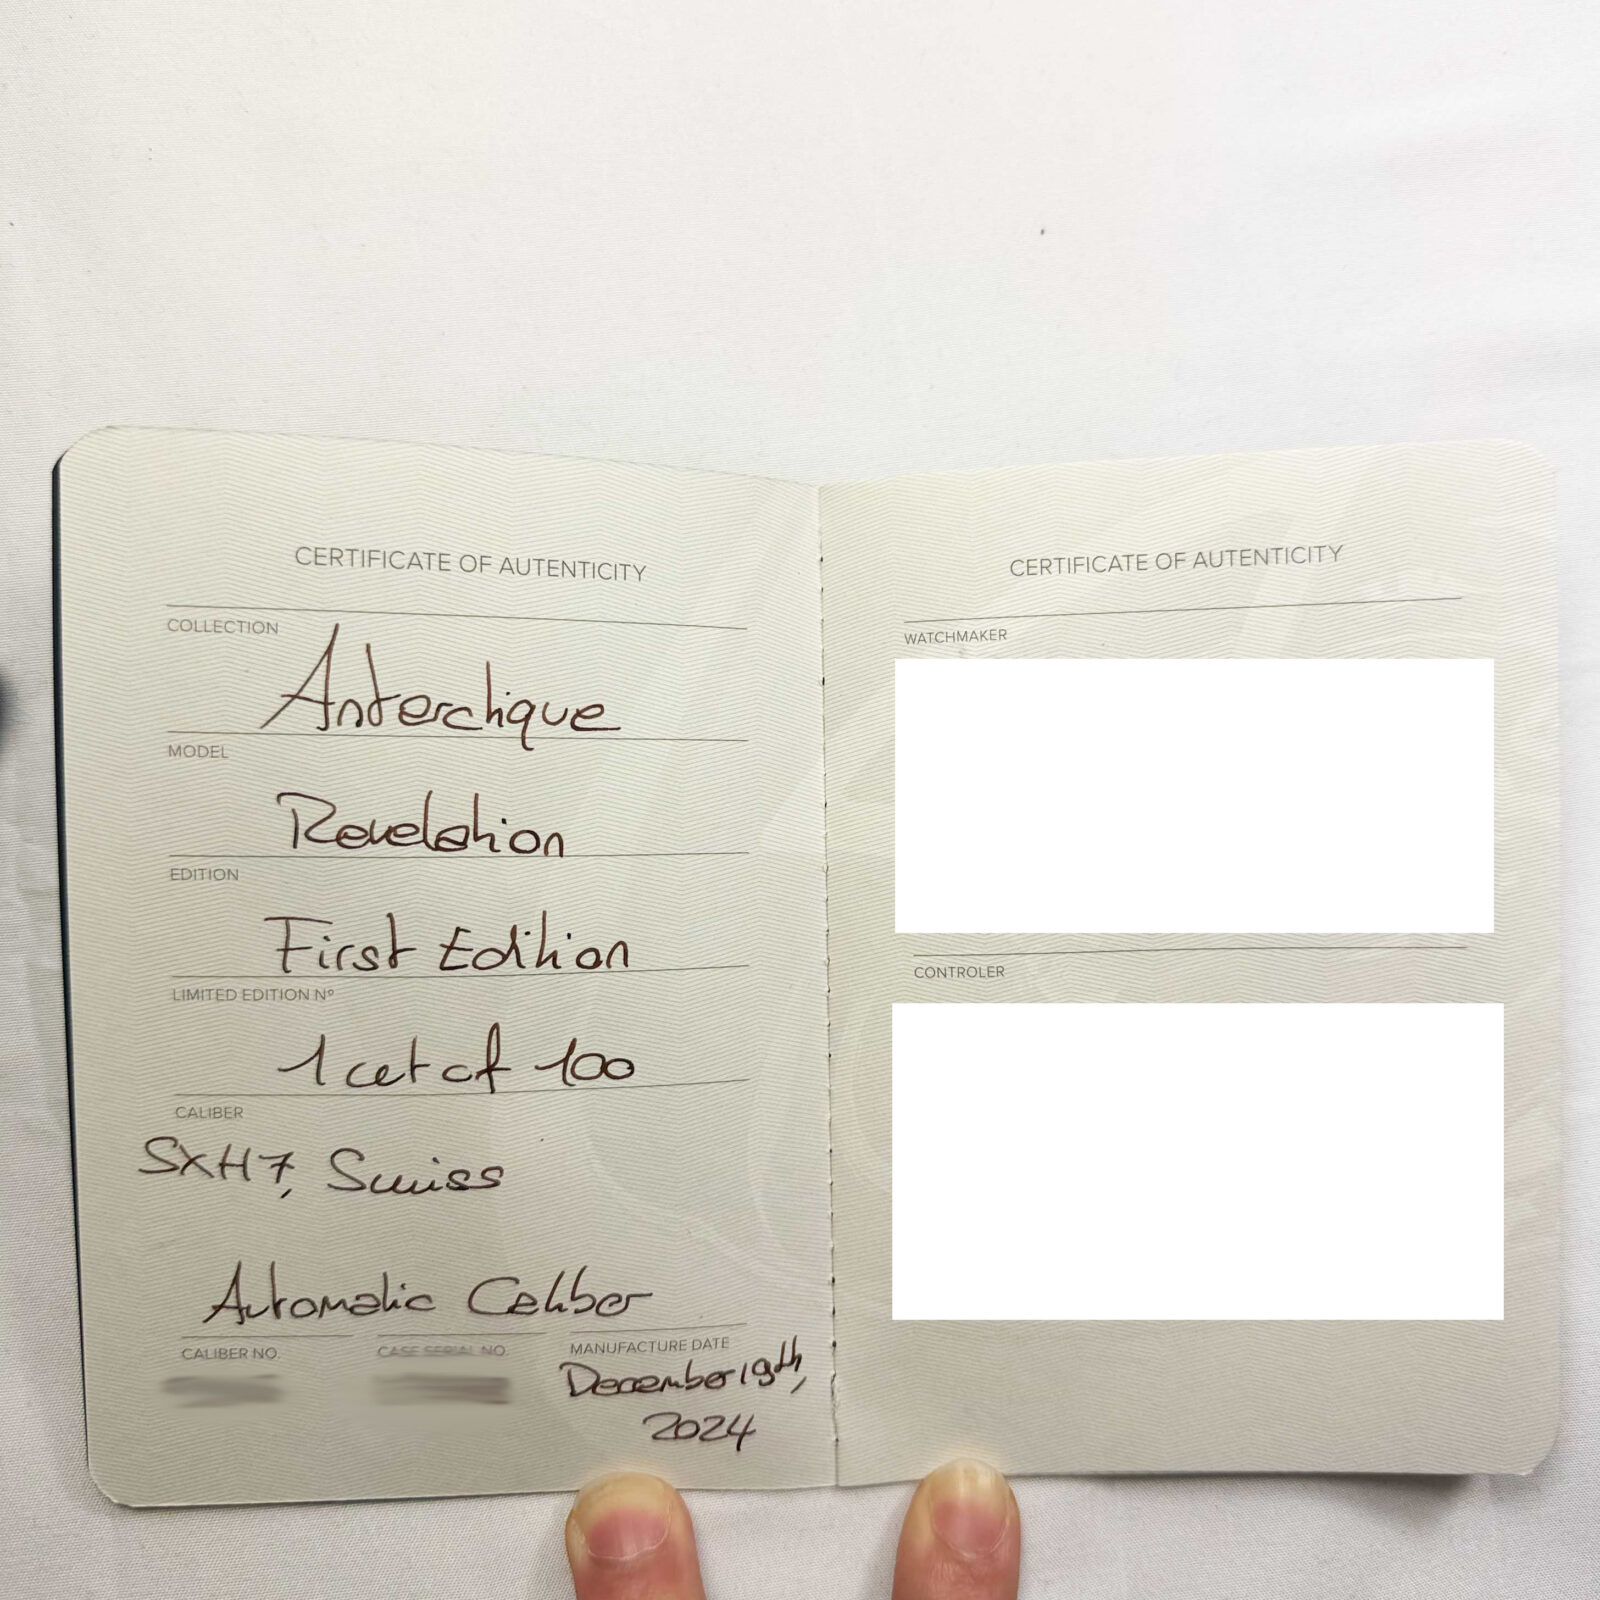 CERTIFICATE OF AUTENTICITY
COLLECTION
Anterctique
MODEL
Revelation
EDITION
First Edition
LIMITED EDITION Nº
1 out of 100
CALIBER
SXH7, Swiss
Automatic Caliber
CALIBER NO.
CASE SERIAL NO.
MANUFACTURE DATE
December 19th,
2024
CERTIFICATE OF AUTENTICITY
WATCHMAKER
CONTROLER